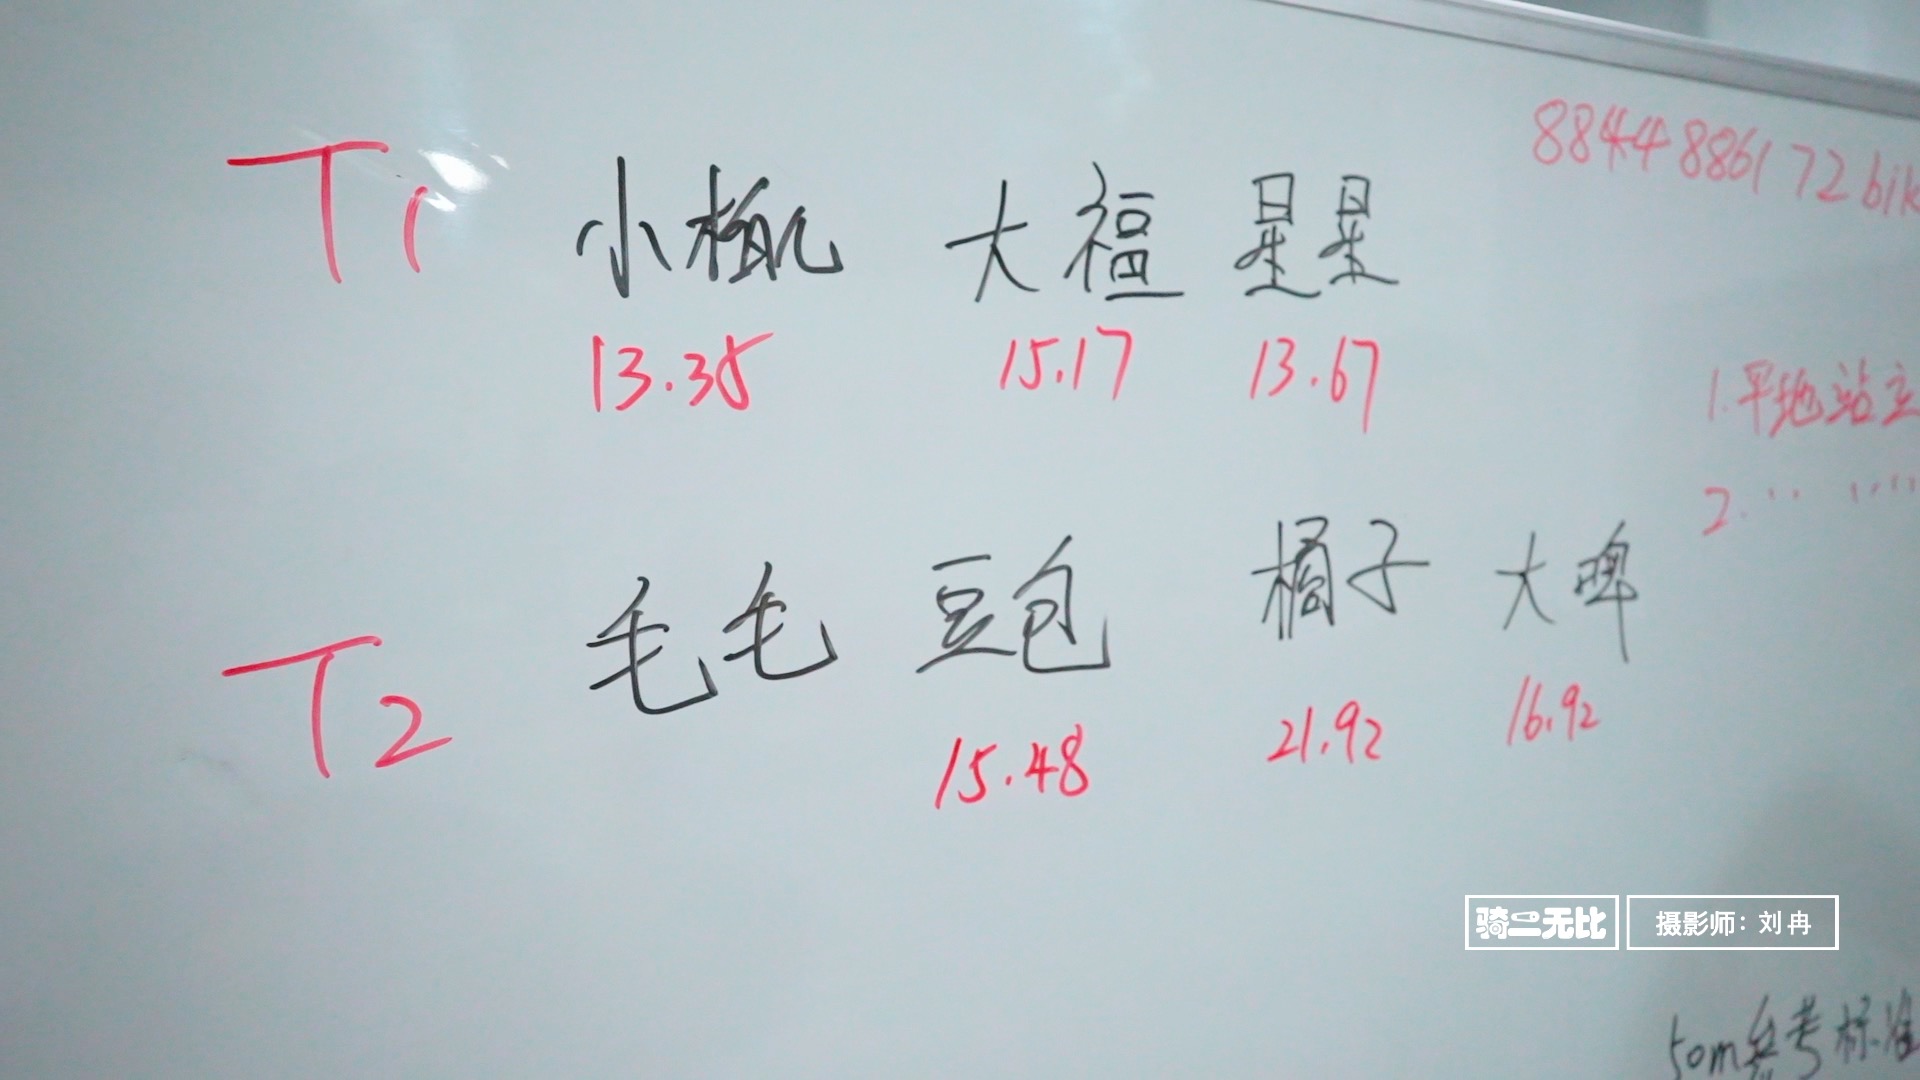 T1 小橄 大福 星星
8844886172bik
13.35 15.17 13.67
1.平地站立
2. '' ''''
T2 毛毛 豆包 橘子 大啤
15.48 21.92 16.92
骑二无比 摄影师：刘冉
50m参考标准